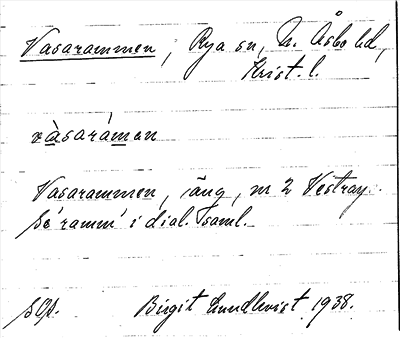 Vasarammen, Rya sn, N. Åsbo hd,
Krist. l.
vàsarámen
Vasarammen, äng, m 2 Vestray.
Se 'ramm' i dial. saml.
Birgit Lundkvist 1938.